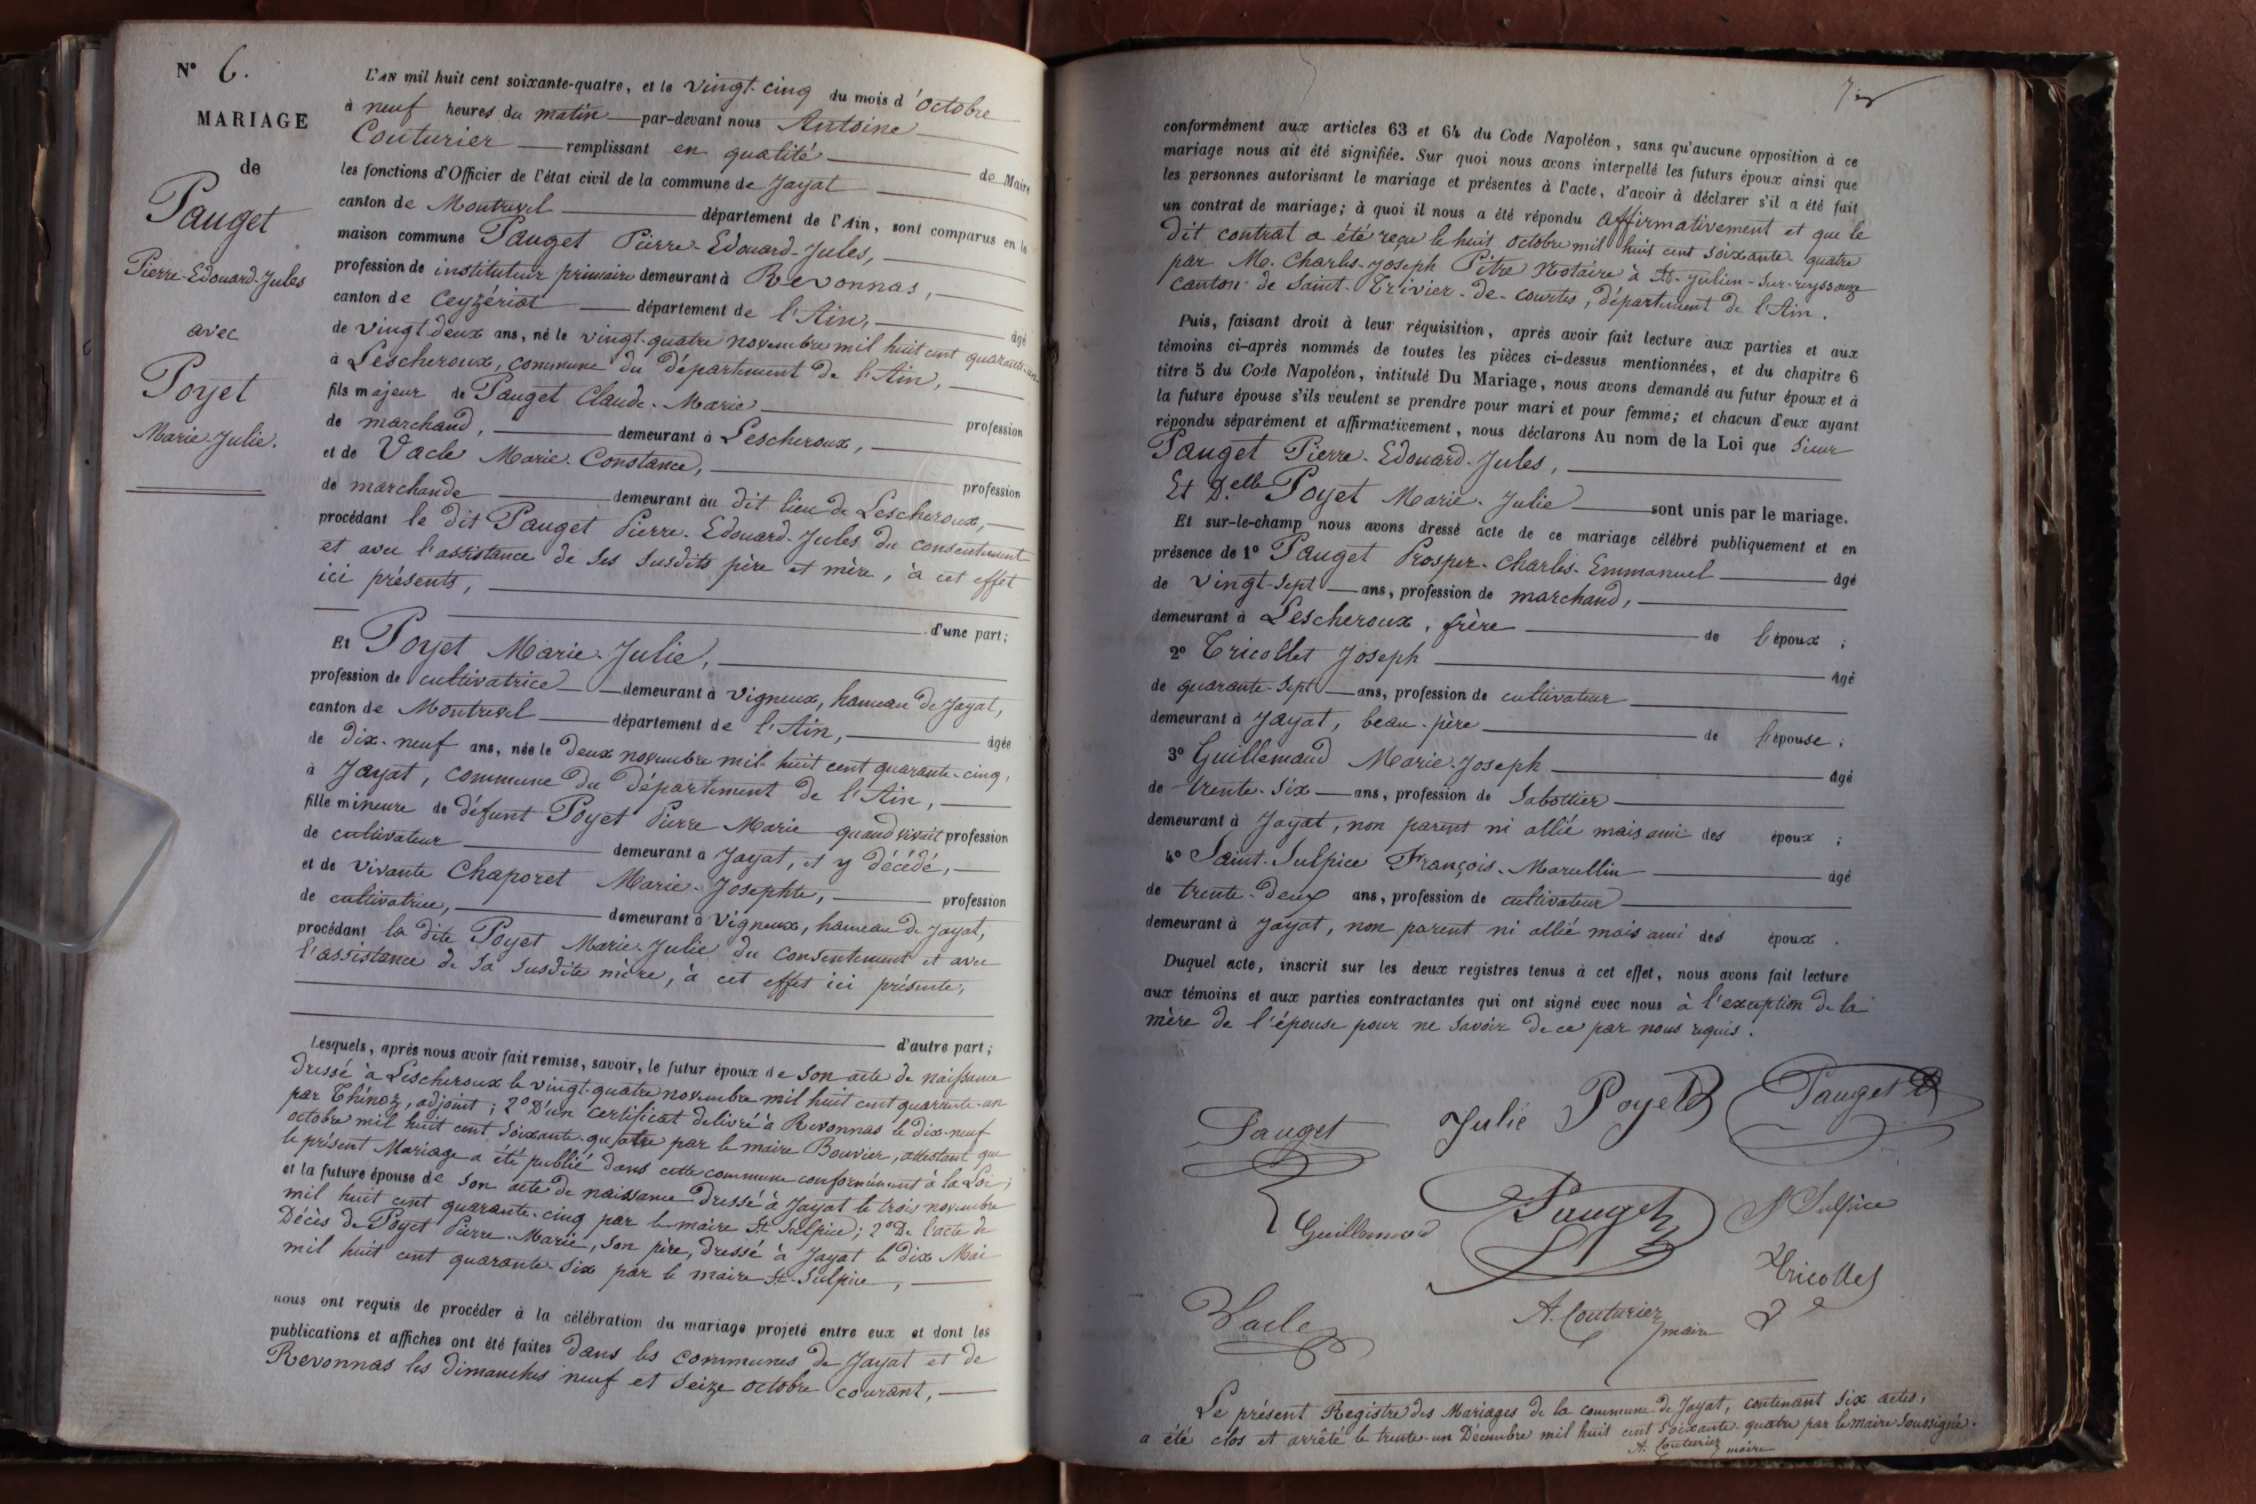 N° 6.
MARIAGE
de
Pauget
Pierre-Edouard-Jules
avec
Poyet
Marie-Julie.
L'AN mil huit cent soixante-quatre, et le vingt-cinq du mois d'octobre
à neuf heures du matin par-devant nous Antoine
Couturier remplissant en qualité de Maire
les fonctions d'Officier de l'état civil de la commune de Jayat
canton de Montrevel département de l'Ain, sont comparus en la
maison commune Pauget Pierre-Edouard-Jules,
profession de instituteur primaire demeurant à Revonnas,
canton de Ceyzériat département de l'Ain, âgé
de vingt-deux ans, né le vingt-quatre novembre mil huit cent quarante-un
à Lescheroux, commune du département de l'Ain,
fils majeur de Pauget Claude-Marie profession
de marchand, demeurant à Lescheroux,
et de Vacle Marie-Constance, profession
de marchande demeurant au dit lieu de Lescheroux,
procédant le dit Pauget Pierre-Edouard-Jules du consentement
et avec l'assistance de ses susdits père et mère, à cet effet
ici présents,
d'une part;
Et Poyet Marie-Julie,
profession de cultivatrice demeurant à Vigneux, hameau de Jayat,
canton de Montrevel département de l'Ain, âgée
de dix-neuf ans, née le deux novembre mil huit cent quarante-cinq,
à Jayat, commune du département de l'Ain,
fille mineure de défunt Poyet Pierre Marie quand vivait profession
de cultivateur demeurant à Jayat, et y décédé,
et de vivante Chaporet Marie-Josephte, profession
de cultivatrice, demeurant à Vigneux, hameau de Jayat,
procédant la dite Poyet Marie-Julie du consentement et avec
l'assistance de sa susdite mère, à cet effet ici présente,
d'autre part;
Lesquels, après nous avoir fait remise, savoir, le futur époux de son acte de naissance
dressé à Lescheroux le vingt-quatre novembre mil huit cent quarante-un
par Thénoz, adjoint; 2° D'un certificat delivré à Revonnas le dix-neuf
octobre mil huit cent soixante-quatre par le maire Bouvier, attestant que
le présent Mariage a été publié dans cette commune conformément à la Loi;
et la future épouse de son acte de naissance dressé à Jayat le trois novembre
mil huit cent quarante-cinq par le maire St-Sulpice; 2° De l'acte de
Décès de Poyet Pierre-Marie, son père, dressé à Jayat le dix Mai
mil huit cent quarante-six par le maire St-Sulpice,
nous ont requis de procéder à la célébration du mariage projeté entre eux et dont les
publications et affiches ont été faites dans les communes de Jayat et de
Revonnas les dimanches neuf et seize octobre courant,
conformément aux articles 63 et 64 du Code Napoléon, sans qu'aucune opposition à ce
mariage nous ait été signifiée. Sur quoi nous avons interpellé les futurs époux ainsi que
les personnes autorisant le mariage et présentes à l'acte, d'avoir à déclarer s'il a été fait
un contrat de mariage; à quoi il nous a été répondu affirmativement et que le
dit contrat a été reçu le huit octobre mil huit cent soixante-quatre
par M. Charles-Joseph Pitre Notaire à St-Julien-sur-reyssouze
canton de Saint-Trivier-de-courtes, département de l'Ain.
Puis, faisant droit à leur réquisition, après avoir fait lecture aux parties et aux
témoins ci-après nommés de toutes les pièces ci-dessus mentionnées, et du chapitre 6
titre 5 du Code Napoléon, intitulé Du Mariage, nous avons demandé au futur époux et à
la future épouse s'ils veulent se prendre pour mari et pour femme; et chacun d'eux ayant
répondu séparément et affirmativement, nous déclarons Au nom de la Loi que Sieur
Pauget Pierre-Edouard-Jules,
Et D.elle Poyet Marie-Julie sont unis par le mariage.
Et sur-le-champ nous avons dressé acte de ce mariage célébré publiquement et en
présence de 1° Pauget Prosper-Charles-Emmanuel âgé
de vingt-sept ans, profession de marchand,
demeurant à Lescheroux, frère de l'époux;
2° Tricollet Joseph âgé
de quarante-sept ans, profession de cultivateur
demeurant à Jayat, beau-père de l'épouse;
3° Guillemaud Marie-Joseph âgé
de trente-six ans, profession de sabottier
demeurant à Jayat, non parent ni allié mais ami des époux;
4° Saint-Sulpice François-Marcellin âgé
de trente-deux ans, profession de cultivateur
demeurant à Jayat, non parent ni allié mais ami des époux.
Duquel acte, inscrit sur les deux registres tenus à cet effet, nous avons fait lecture
aux témoins et aux parties contractantes qui ont signé avec nous à l'exception de la
mère de l'épouse pour ne savoir de ce par nous requis.
Pauget Julie Poyet Pauget
Guillemaud Pauget St Sulpice
Tricollet
Vacle A. Couturier maire
Le présent Registre des Mariages de la commune de Jayat, contenant six actes,
a été clos et arrêté le trente-un Décembre mil huit cent soixante-quatre par le maire soussigné.
A. Couturier maire